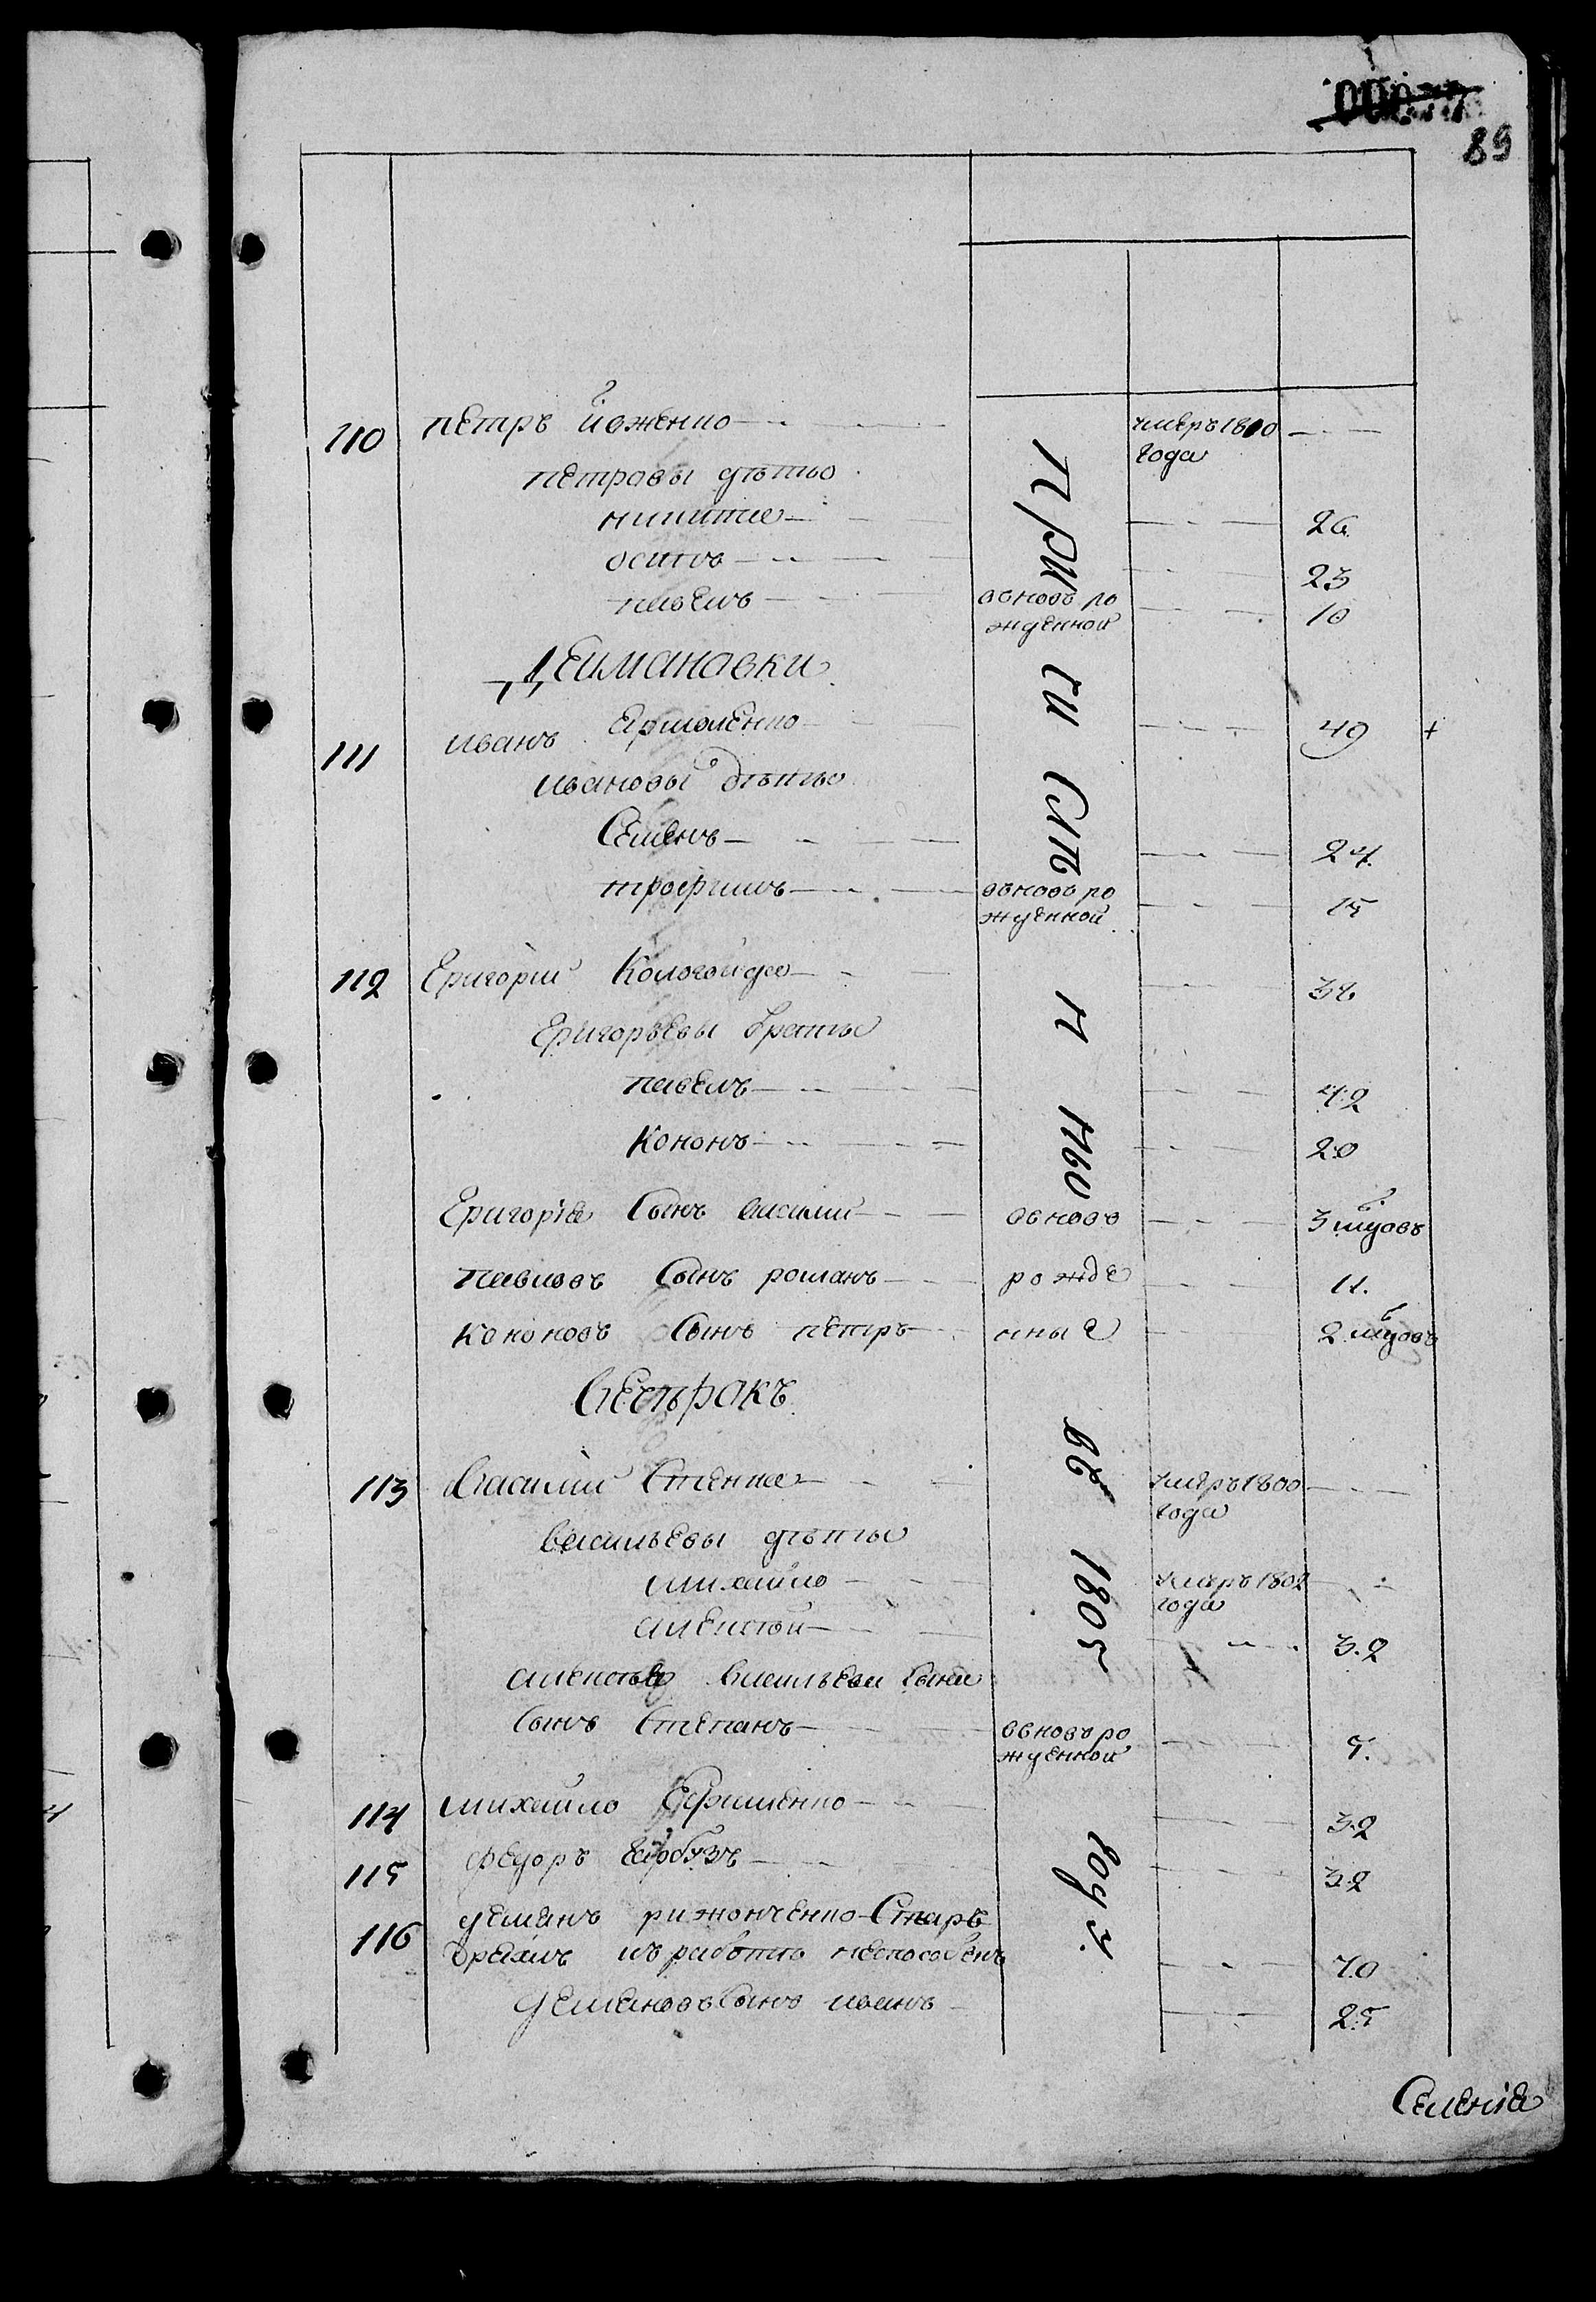 89
110 Петръ Йовженко умеръ 1800
года
Петровы дѣти
Никита 26
Осипъ 23
Павелъ вновь ро 10
жденной
Деимановки
111 Иванъ Ермоленко 49 +
Ивановы дѣти
Семенъ 24
Трофимъ вновь ро 15
жденной
112 Григорій Кологойда 36
Григорьевы братья
Павелъ 42
Кононъ 20
Григорія сынъ Василий вновь 3 мцовъ
Павловъ сынъ Романъ рожде 11.
Кононовъ сынъ Петръ нные 2 мцовъ
113 Василий умеръ 1800
года
Васильевы дѣти
Михайло умеръ 1802
года
Алексѣй 32
Алексѣя Васильева сына
сынъ Степанъ вновь ро 5.
жденной
114 Михайло Ефименко 32
115 Федоръ Гарбузъ 32
116 Деманъ Рижонченко Старъ
дряхлъ къ работѣ неспособенъ 70
Демановъ сынъ Иванъ 25
При чи слѣ н но въ 1805 году.
Селенія